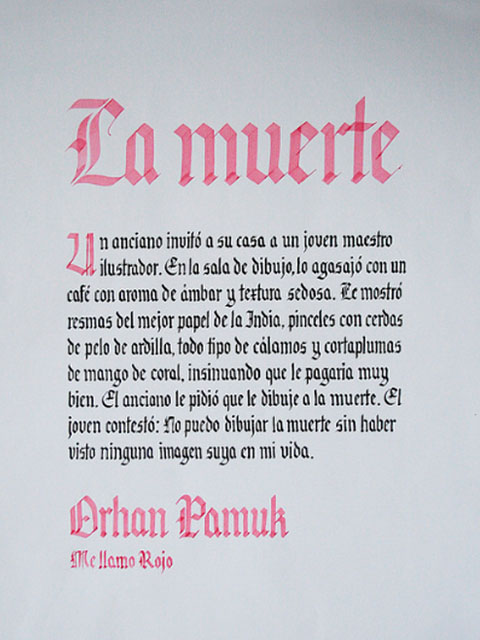 La muerte
Un anciano invitó a su casa a un joven maestro
ilustrador. En la sala de dibujo, lo agasajó con un
café con aroma de ámbar y textura sedosa. Le mostró
resmas del mejor papel de la India, pinceles con cerdas
de pelo de ardilla, todo tipo de cálamos y cortaplumas
de mango de coral, insinuando que le pagaria muy
bien. El anciano le pidió que le dibuje a la muerte. El
joven contestó: No puedo dibujar la muerte sin haber
visto ninguna imagen suya en mi vida.
Orhan Pamuk
Me llamo Rojo